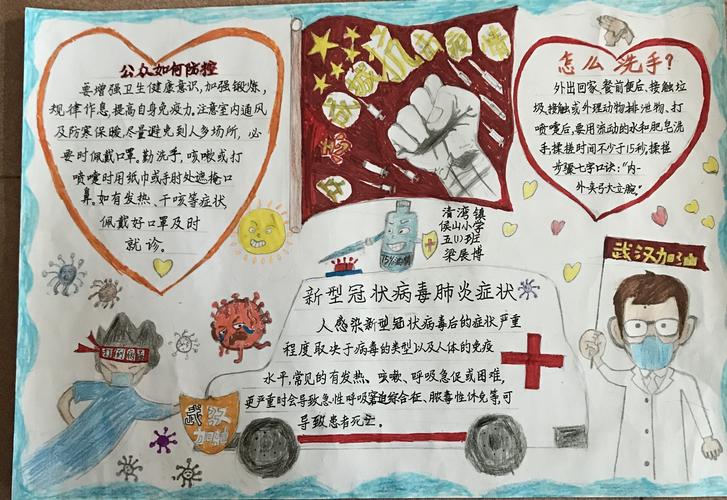 公众如何防控
要增强卫生健康意识,加强锻炼,
规律作息,提高自身免疫力。注意室内通风
及防寒保暖,尽量避免到人多场所,必
要时佩戴口罩。勤洗手,咳嗽或打
喷嚏时用纸巾或手肘处遮掩口
鼻。如有发热、干咳等症状
佩戴好口罩及时
就诊。
战胜疫情
怎么洗手?
外出回家、餐前便后、接触垃
圾、接触或处理动物排泄物、打
喷嚏后,要用流动的水和肥皂洗
手,揉搓时间不少于15秒,揉搓
步骤七字口诀:"内-
外夹弓大立腕。"
清湾镇
侯山小学
五(1)班
梁展博
武汉加油
新型冠状病毒肺炎症状
人感染新型冠状病毒后的症状严重
程度取决于病毒的类型以及人体的免疫
水平,常见的有发热、咳嗽、呼吸急促或困难,
更严重时会导致急性呼吸窘迫综合征、脓毒性休克等,可
导致患者死亡。
打倒病毒
武汉
加油